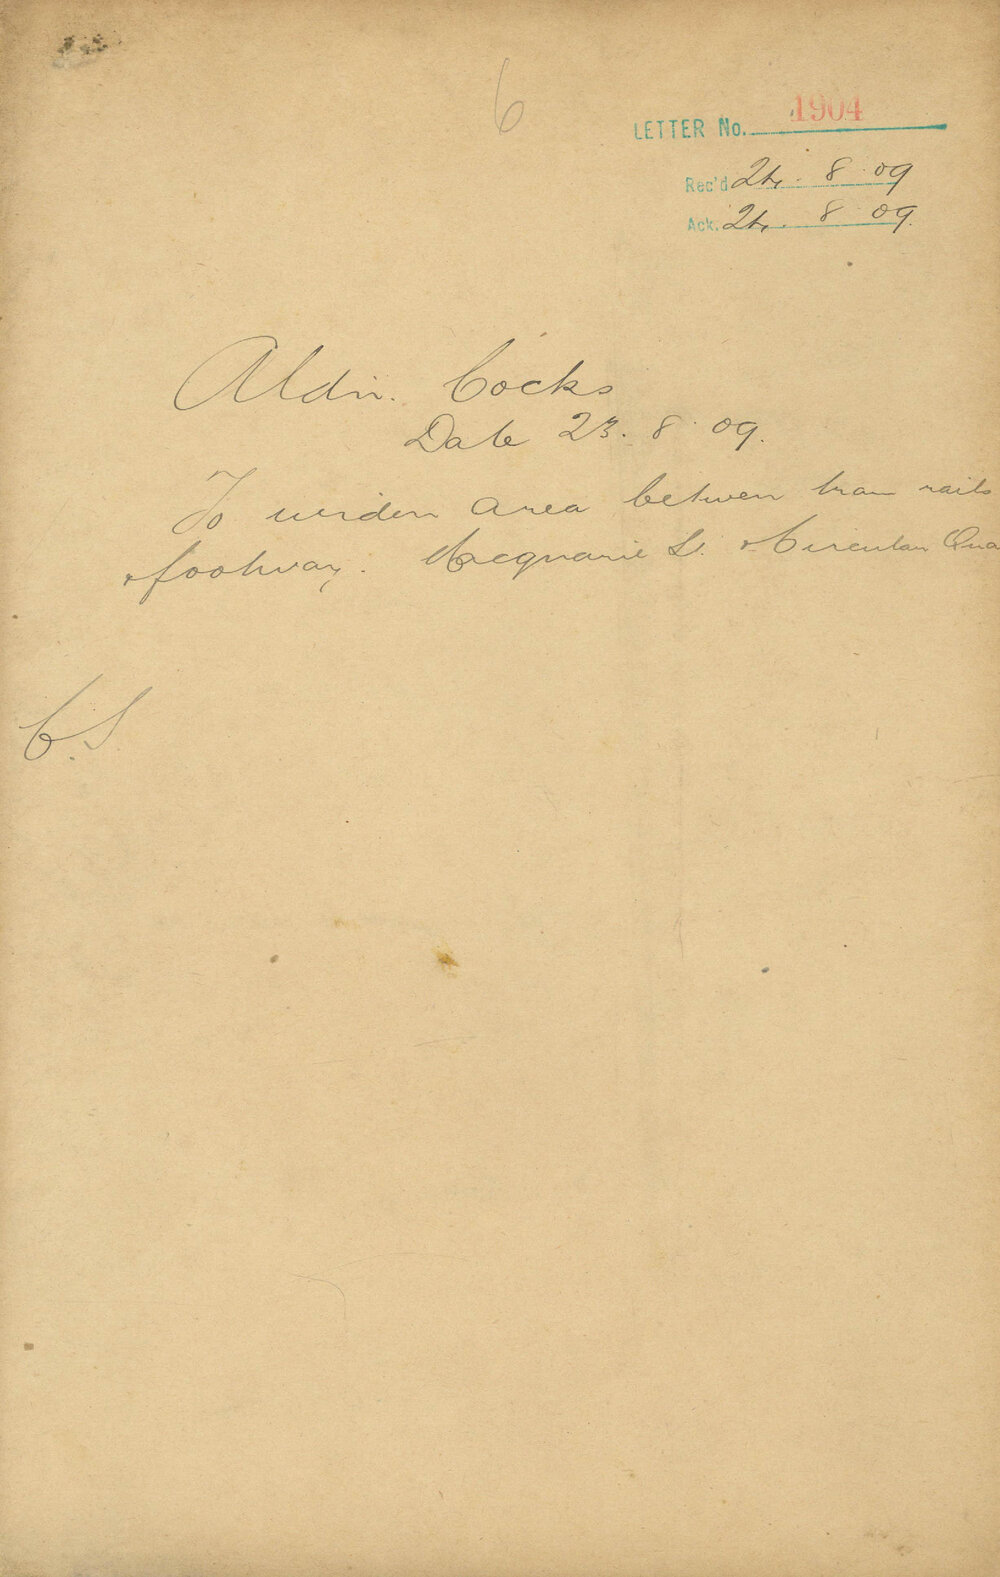 6
LETTER No. 1904
Rec'd 24. 8 09
Ack. 24. 8 09.
Aldn. Cocks
Date 23. 8 09.
To widen area between tram rails
& footway. Macquarie St. & Circular Qua
C.S